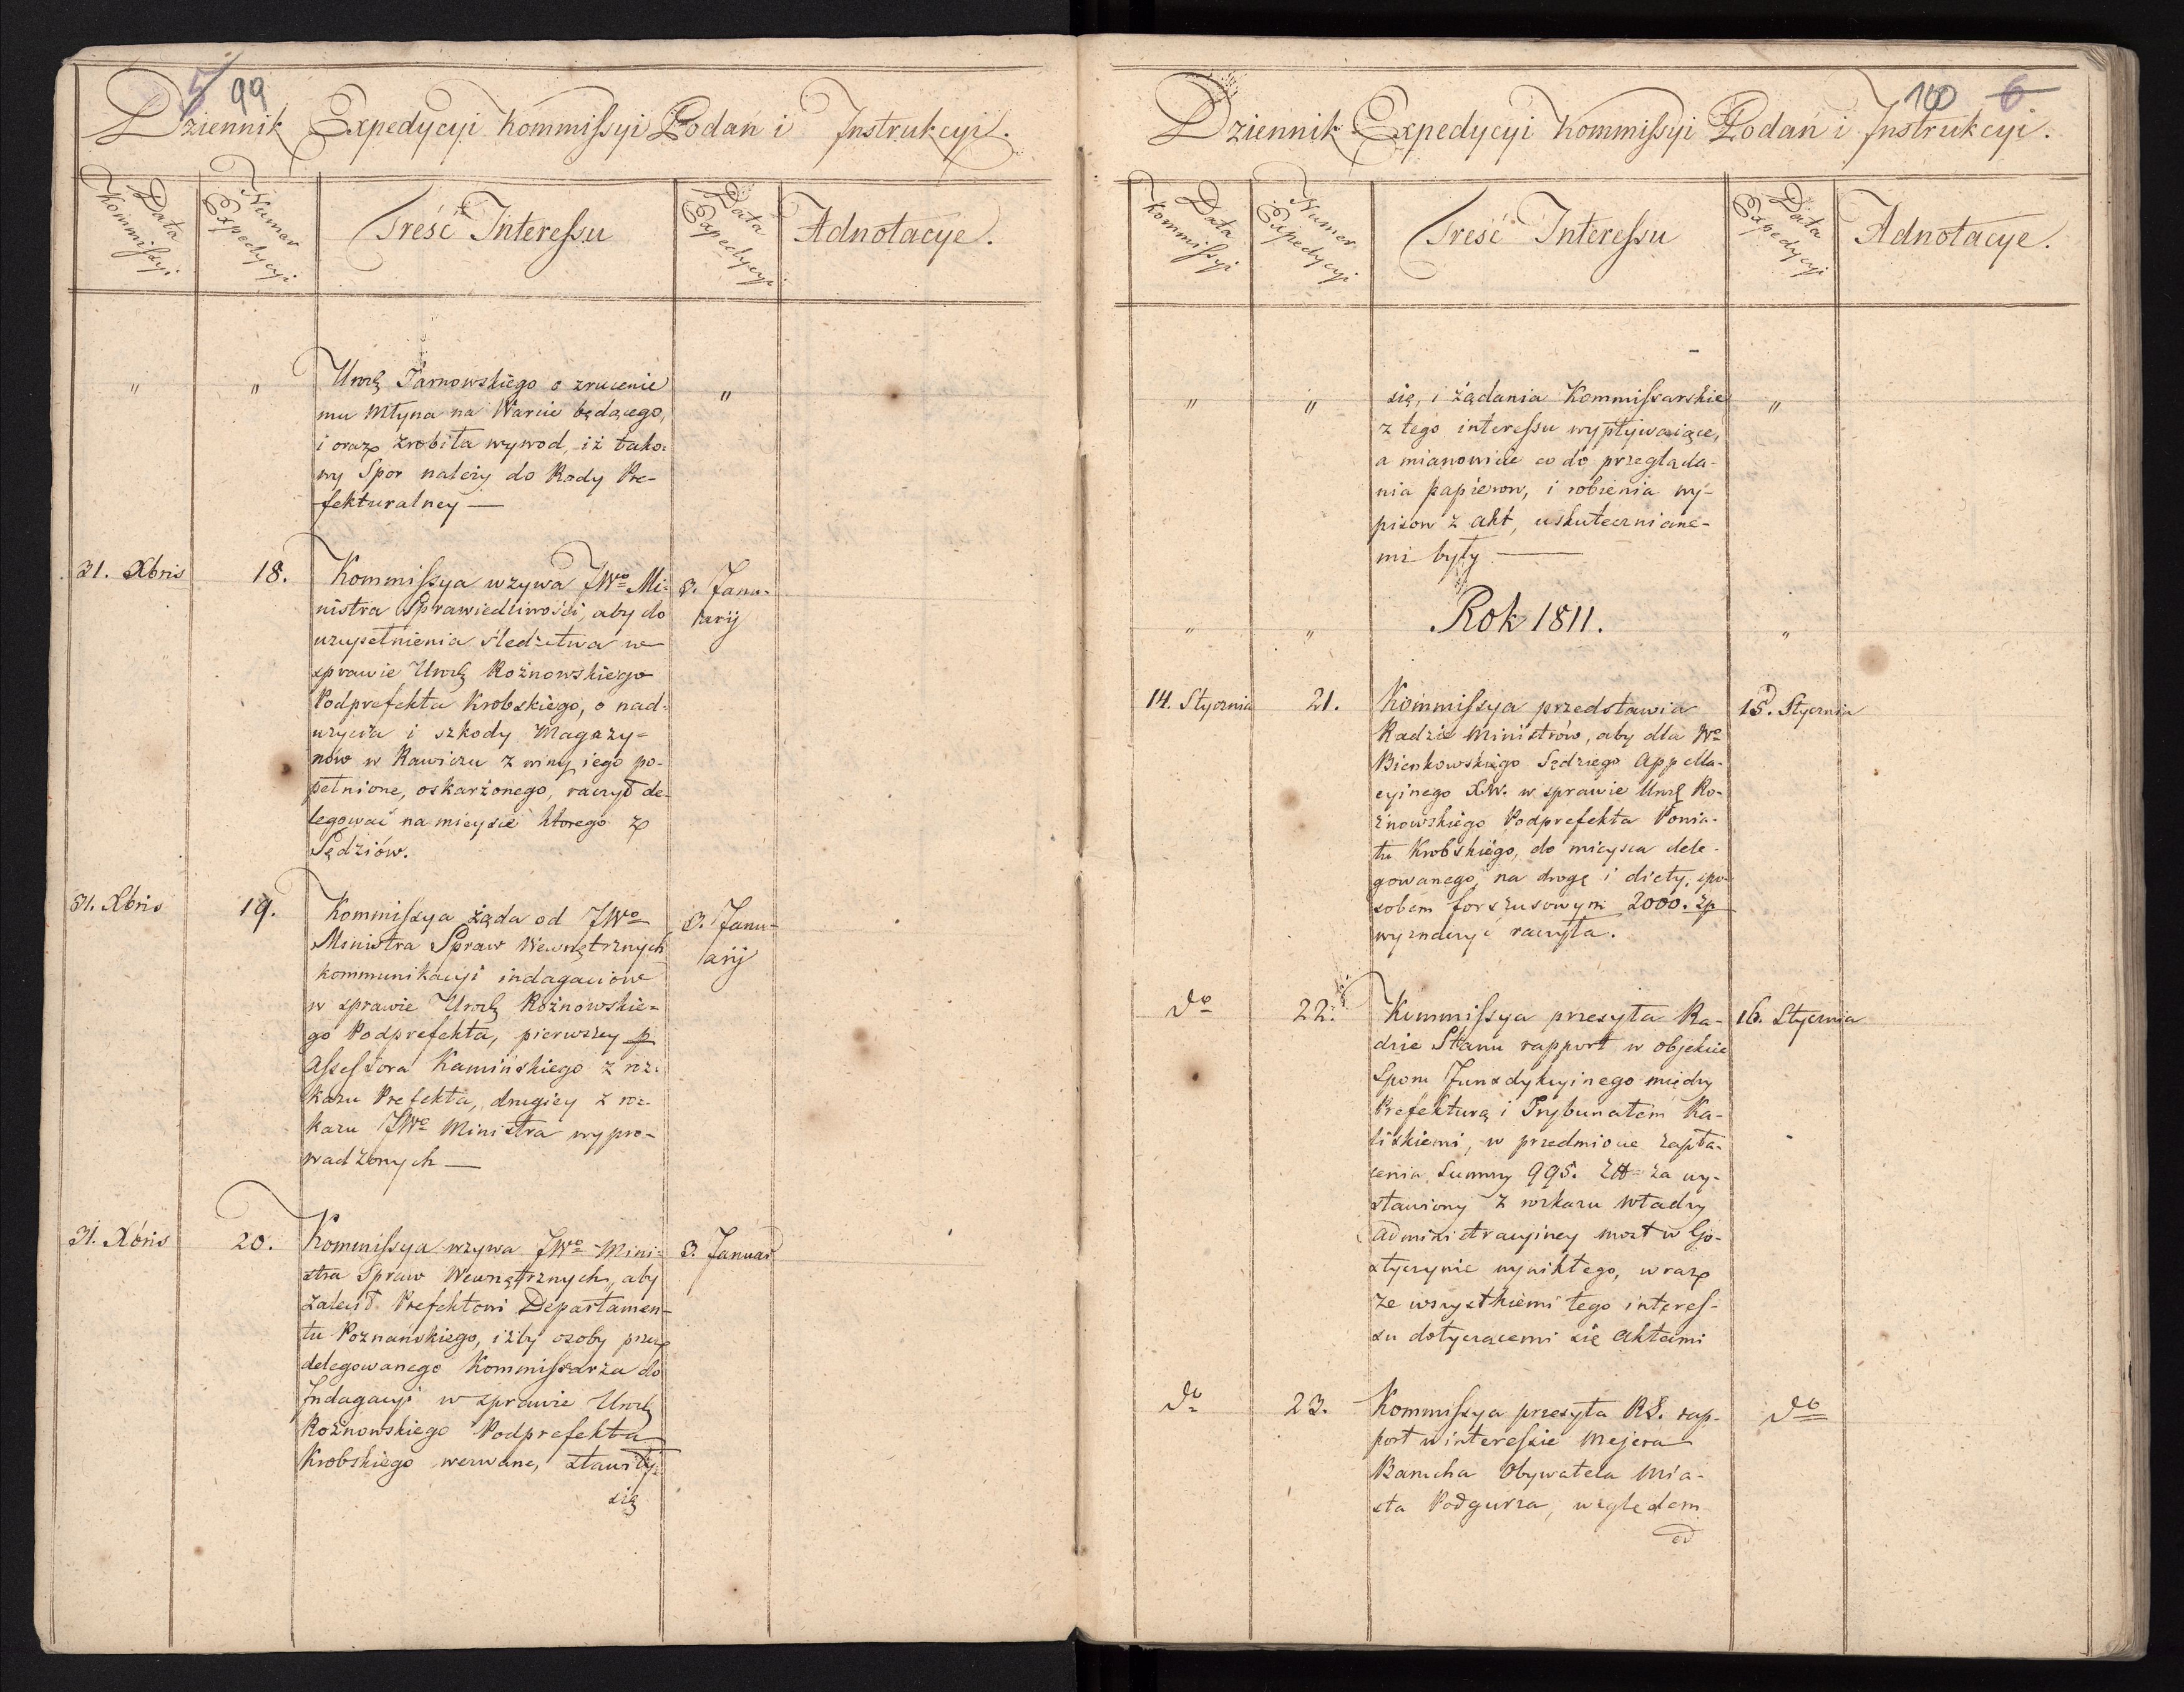 5 99
Dziennik Expedycyi Kommissyi Podań i Instrukcyi.
Data Kommissyi
Numer Expedycyi
Treść Interessu
Data Expedycyi
Adnotacye.
" " Tarnowskiego o zrucenie "
mu Młyna na Warcie będącego,
i oraz zrobiła wywod, iż tako=
wy Spor należy do Rady Pre-
fekturalney —
31. Xbris 18. Kommissya wzywa JWo Mi= 3. Janu-
nistra Sprawiedliwości, aby do arij
uzupełnienia śledztwa w
sprawie Rożnowskiego
Podprefekta Krobskiego, o nad=
użycia i szkody Magazy=
nów w Rawiczu z winy iego po-
pełnione, oskarżonego, raczył de-
legować na mieysce ktorego z
Sędziów.
31. Xbris 19. Kommissya żąda od JWo 3. Janu-
Ministra Spraw Wewnętrznych arij
kommunikacyi indagaciow
w sprawie Rożnowskie=
go Podprefekta, pierwszey p
Assessora Kamińskiego z roz=
kazu Prefekta, drugiey z roz-
kazu JWo Ministra wypro-
wadzonych —
31. Xbris 20. Kommissya wzywa JWo Mini= 3. Januar
stra Spraw Wewnętrznych, aby
zalecił Prefektowi Departamen-
tu Poznańskiego, iżby osoby przez
delegowanego Kommissarza do
Indagacyi w sprawie
Rożnowskiego Podprefekta
Krobskiego wezwane, stawiły
się
100 6
Dziennik Expedycyi Kommissyi Podań i Instrukcyi.
Data Kommissyi
Numer Expedycyi
Treść Interessu
Data Expedycyi
Adnotacye.
" " się, i żądania Kommissarskie "
z tego interessu wypływaiące,
a mianowicie co do przegląda-
nia papierow, i robienia wy-
pisow z akt, uskutecznione-
mi były —
" " Rok 1811. "
14. Stycznia 21. Kommissya przedstawia 15. Stycznia
Radzie Ministrów, aby dla Wo
Bienkowskiego Sędziego Appella-
cyinego X.W. w sprawie Ro-
żnowskiego Podprefekta Powia-
tu Krobskiego, do mieysca dele-
gowanego, na drogę i diety, spo-
sobem forszusowym 2000. zp
wyznaczyć raczyła.
do 22. Kommissya przesyła Ra- 16. Stycznia
dzie Stanu rapport w objekcie
Sporu Jurisdykcyinego między
Prefekturą i Trybunałem Ka-
liskiemi, w przedmiocie zapła-
cenia Summy 995. za wy-
stawiony z rozkazu władzy
administracyiney most w Go-
styczynie wynikłego, wraz
ze wszystkiemi tego interes-
su dotyczącemi się aktami
do 23. Kommissya przesyła RS. rap- do
port w interessie Mejera
Barucha Obywatela Mia-
sta Podgurza, względem
od